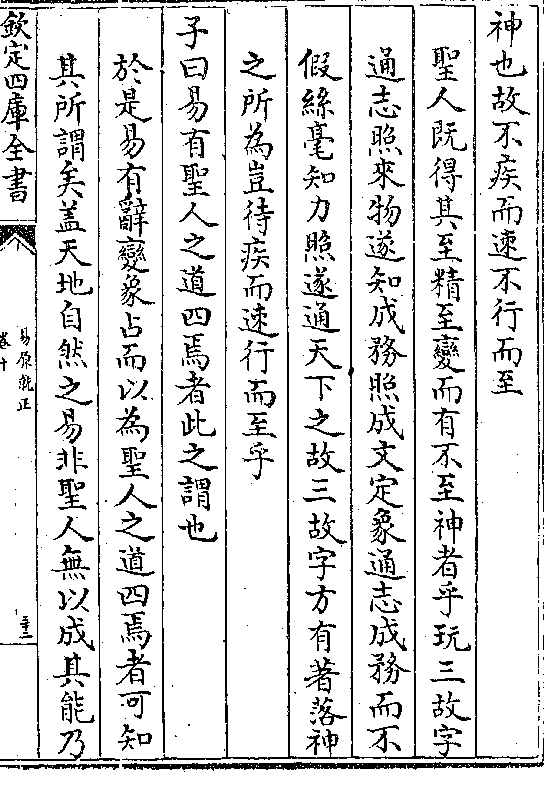 神也故不疾而速不行而至
聖人既得其至精至變而有不至神者乎玩三故字
通志照來物遂知成務照成文定象通志成務而不
假絲毫知力照遂通天下之故三故字方有著落神
之所為豈待疾而速行而至乎
子曰易有聖人之道四焉者此之謂也
於是易有辭變象占而以為聖人之道四焉者可知
其所謂矣蓋天地自然之易非聖人無以成其能乃
欽定四庫全書
易原就正
卷十